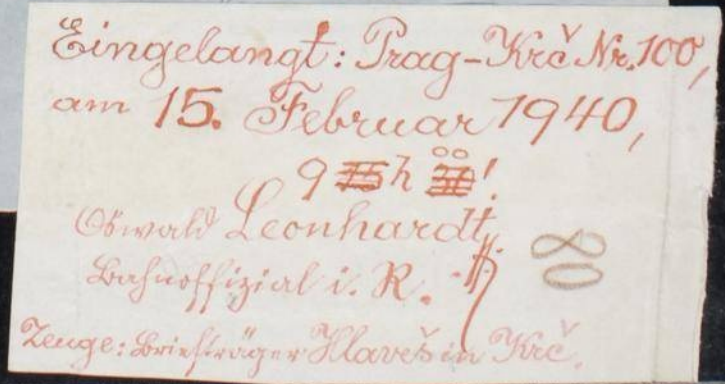 Eingelangt: Prag-Krč Nr. 100,
am 15. Februar 1940,
9 h 00'.
Oswald Leonhardt,
Bahnoffizial i. R.
Zeuge: Briefträger Hlaveš in Krč.
80